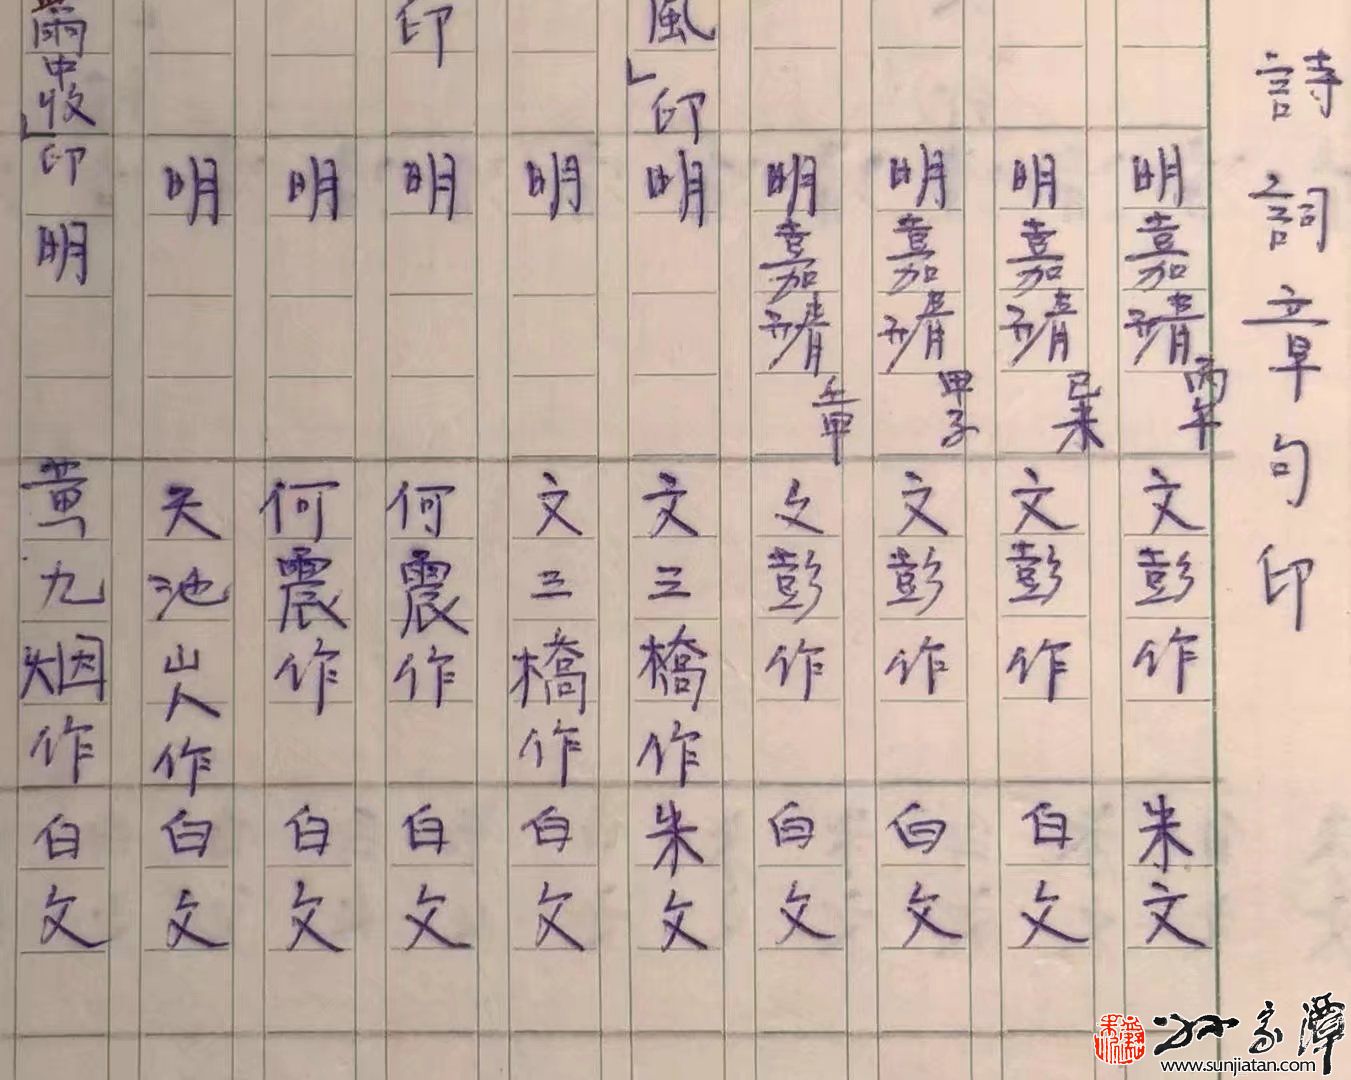 詩詞章句印
明嘉靖丙午文彭作朱文
明嘉靖己未文彭作白文
明嘉靖甲子文彭作白文
明嘉靖壬申文彭作白文
風」印明文三橋作朱文
明文三橋作白文
印明何震作白文
明何震作白文
明天池山人作白文
雨中收」印明黄九烟作白文
孙家潭
www.sunjiatan.com